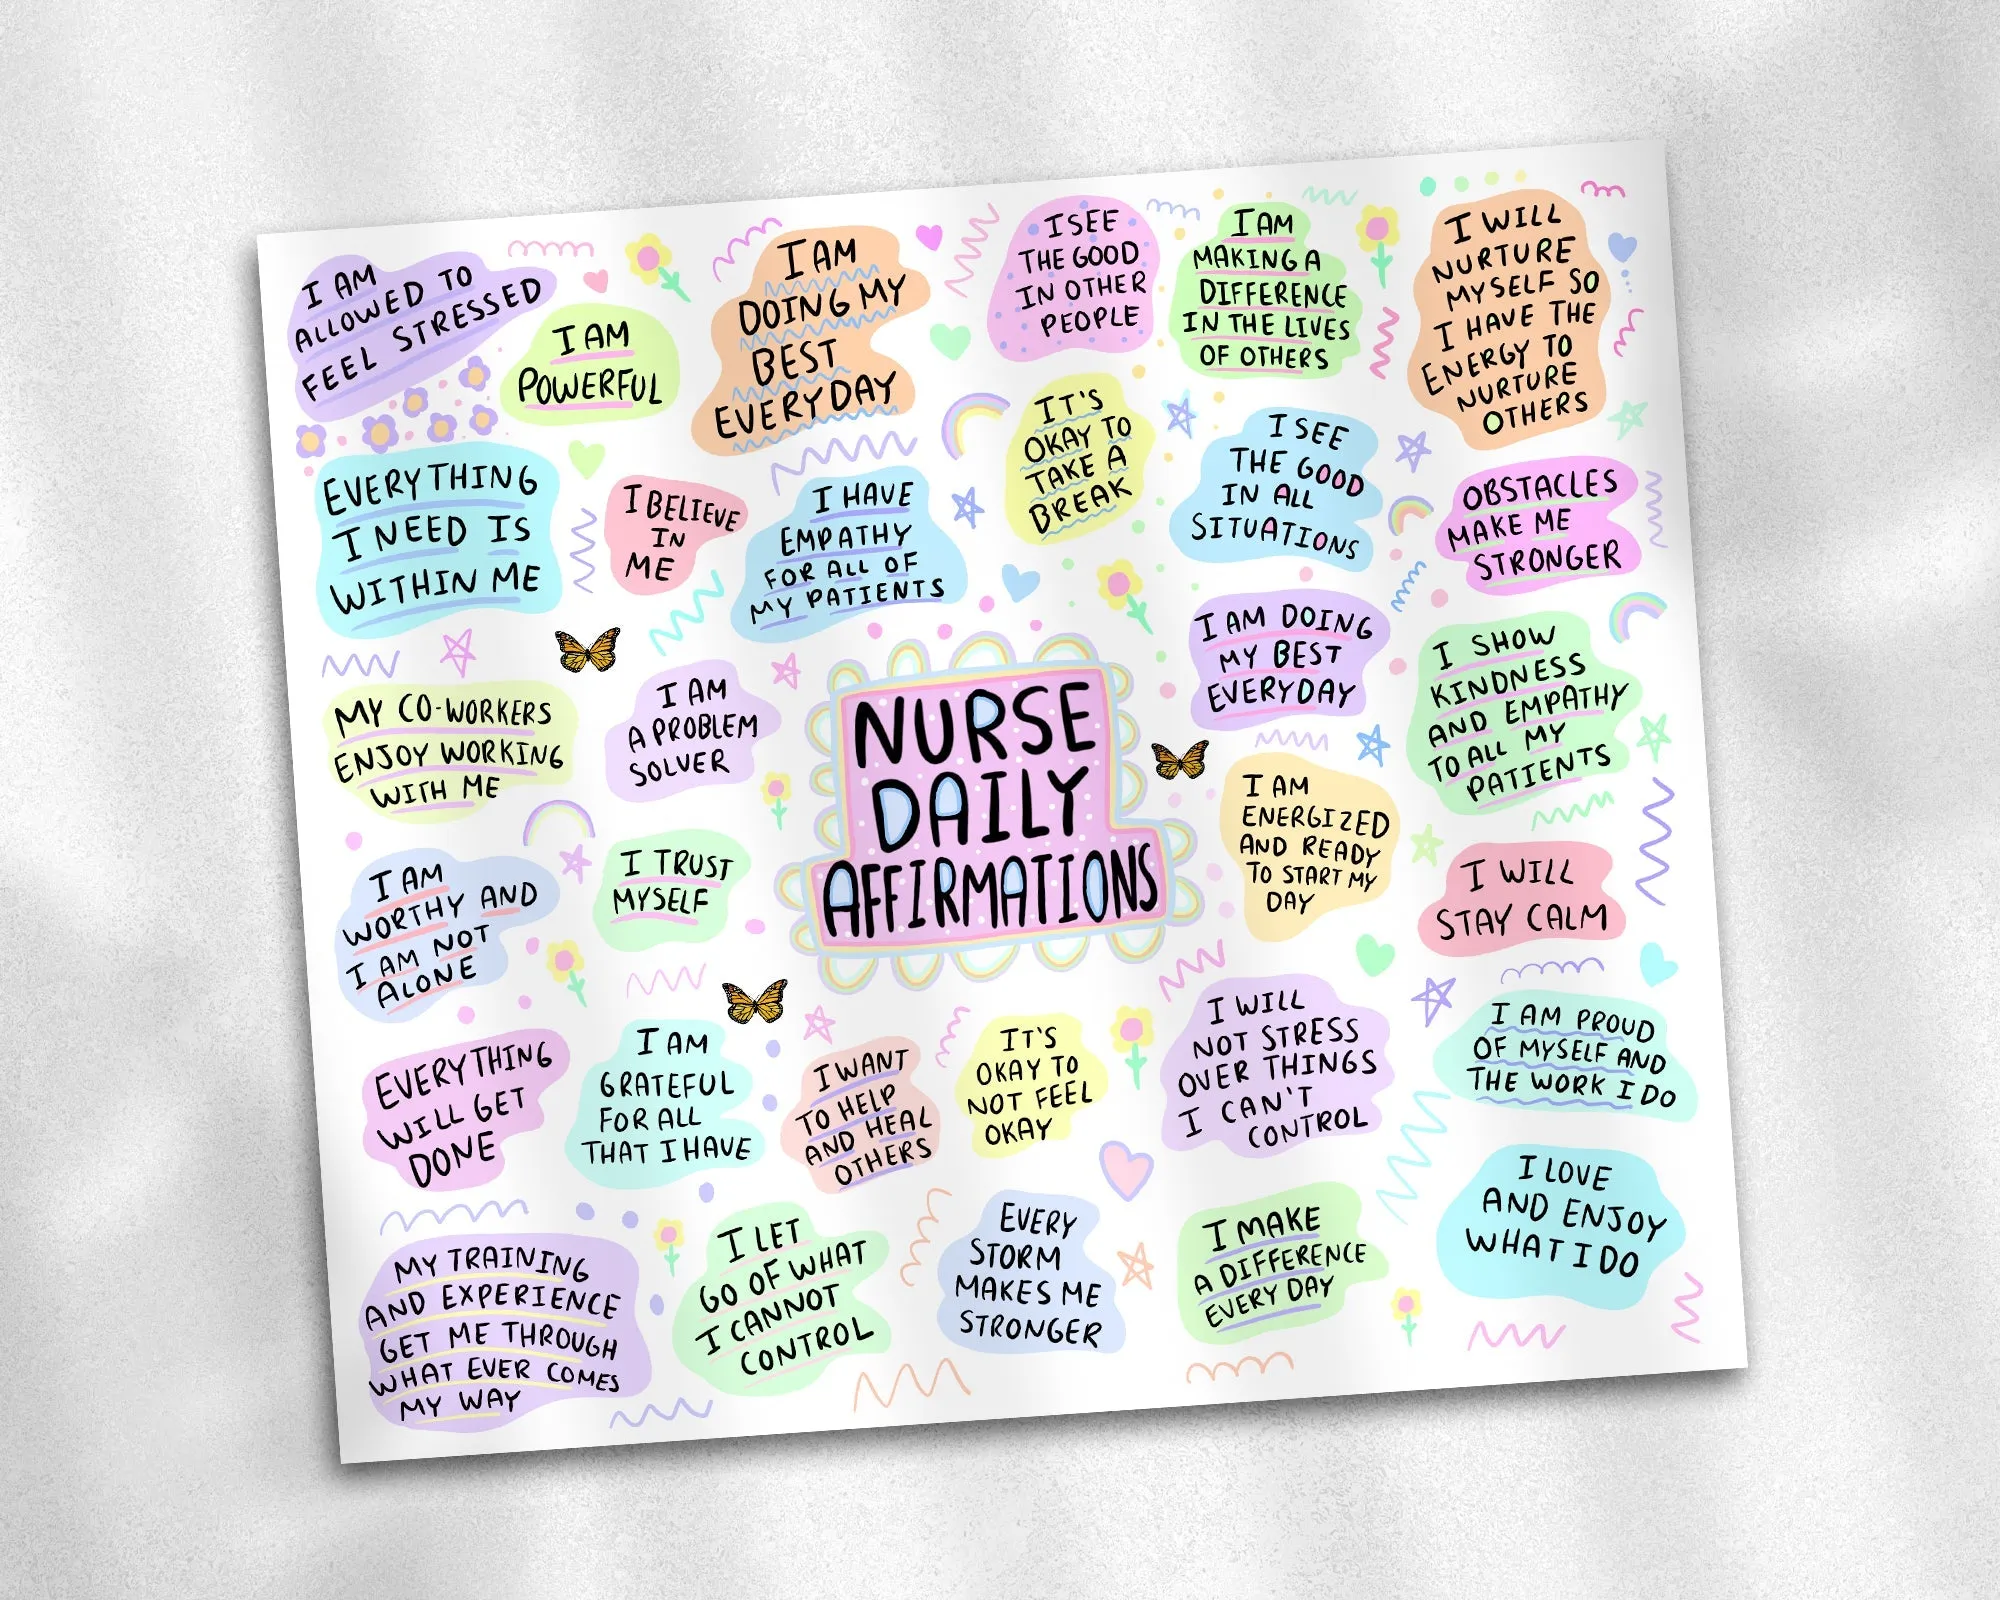 I AM
ALLOWED TO
FEEL STRESSED
I AM
POWERFUL
I AM
DOING MY
BEST
EVERYDAY
I SEE
THE GOOD
IN OTHER
PEOPLE
I AM
MAKING A
DIFFERENCE
IN THE LIVES
OF OTHERS
I WILL
NURTURE
MYSELF SO
I HAVE THE
ENERGY TO
NURTURE
OTHERS
EVERYTHING
I NEED IS
WITHIN ME
I BELIEVE
IN
ME
I HAVE
EMPATHY
FOR ALL OF
MY PATIENTS
IT'S
OKAY TO
TAKE A
BREAK
I SEE
THE GOOD
IN ALL
SITUATIONS
OBSTACLES
MAKE ME
STRONGER
MY CO-WORKERS
ENJOY WORKING
WITH ME
I AM
A PROBLEM
SOLVER
NURSE
DAILY
AFFIRMATIONS
I AM DOING
MY BEST
EVERYDAY
I SHOW
KINDNESS
AND EMPATHY
TO ALL MY
PATIENTS
I AM
ENERGIZED
AND READY
TO START MY
DAY
I WILL
STAY CALM
I AM
WORTHY AND
I AM NOT
ALONE
I TRUST
MYSELF
EVERYTHING
WILL GET
DONE
I AM
GRATEFUL
FOR ALL
THAT I HAVE
I WANT
TO HELP
AND HEAL
OTHERS
IT'S
OKAY TO
NOT FEEL
OKAY
I WILL
NOT STRESS
OVER THINGS
I CAN'T
CONTROL
I AM PROUD
OF MYSELF AND
THE WORK I DO
MY TRAINING
AND EXPERIENCE
GET ME THROUGH
WHAT EVER COMES
MY WAY
I LET
GO OF WHAT
I CANNOT
CONTROL
EVERY
STORM
MAKES ME
STRONGER
I MAKE
A DIFFERENCE
EVERY DAY
I LOVE
AND ENJOY
WHAT I DO